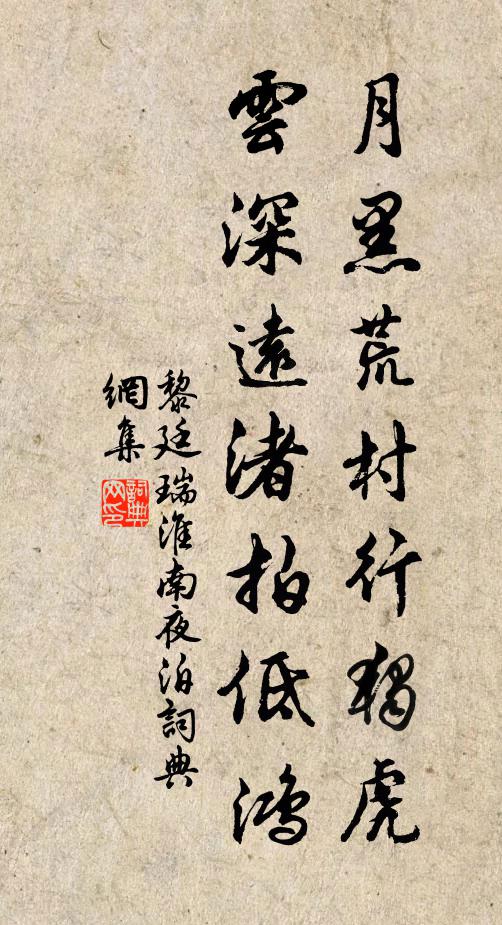 月黑荒村行獨虎
雲深遠渚拍低鴻
黎廷瑞淮南夜泊詞典
網集
詞典網印